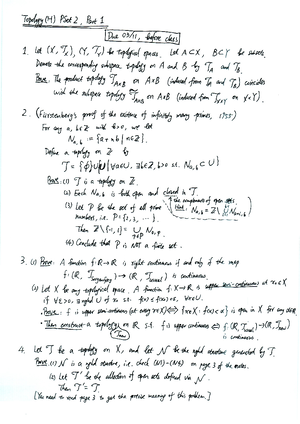 Topology (H) PSet 2, Part 1
Due 03/11, before class
1. Let (X, 𝒯_X), (Y, 𝒯_Y) be topological spaces. Let A⊂X, B⊂Y be subsets.
Denote the corresponding subspace topology on A and B by 𝒯_A and 𝒯_B.
Prove: The product topology 𝒯_{A×B} on A×B (induced from 𝒯_A and 𝒯_B) coincides
with the subspace topology 𝒯_{A×B} on A×B (induced from 𝒯_{X×Y} on X×Y).
2. (Furstenberg's proof of the existence of infinitely many primes, 1955)
For any a, b∈ℤ with b>0, we let
N_{a,b} := {a+nb | n∈ℤ}.
Define a topology on ℤ by
𝒯 = {∅}∪{U | ∀a∈U, ∃b∈ℤ, b>0 s.t. N_{a,b}⊂U}
Prove: (1) 𝒯 is a topology on ℤ.
(2) Each N_{a,b} is both open and closed in 𝒯.
the complement of open sets
(3) Let P be the set of all prime
Hint: N_{a,b} = ℤ \ ∪ N_{a+i,b}
numbers, i.e. P={2,3, ...}.
Then ℤ\{-1,1} = ∪_{p∈P} N_{0,p}.
(4) Conclude that P is NOT a finite set.
3. (1) Prove: A function f:ℝ→ℝ is right continuous if and only if the map
f: (ℝ, 𝒯_{Sorgenfrey}) → (ℝ, 𝒯_{usual}) is continuous.
(2) Let X be any topological space. A function f:X→ℝ is upper semi-continuous at x₀∈X
if ∀ε>0, ∃ nghd U of x₀ s.t. f(x)≤f(x₀)+ε, ∀x∈U.
Prove: f is upper semi-continuous (at every x₀∈X) ⟺ {x∈X : f(x)<a} is open in X for any a∈ℝ.
Then construct a topology on ℝ s.t. f is upper continuous ⟺ f:
is continuous.
4. Let 𝒯 be a topology on X, and let 𝒩 be the nghd structure generated by 𝒯.
Prove: (1) 𝒩 is a nghd structure, i.e. check (N1)-(N4) on page 3 of the notes.
(2) Let 𝒯' be the collection of open sets defined via 𝒩.
Then 𝒯' = 𝒯
[You need to read page 3 to get the precise meaning of this problem.]